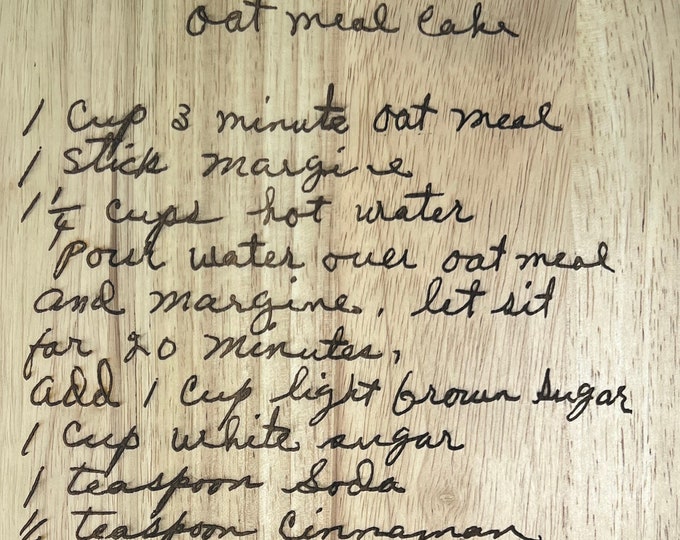 oat meal Cake
1 Cup 3 minute oat meal
1 stick margine
1 1/4 Cups hot water
pour water over oat meal
and margine, let sit
for 20 minutes,
add 1 Cup light brown sugar
1 Cup white sugar
1 teaspoon Soda
teaspoon Cinnaman